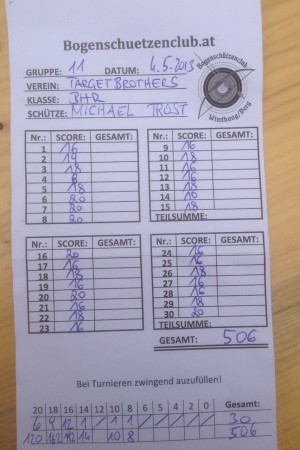 Bogenschuetzenclub.at
GRUPPE: 11 DATUM: 4.5.2013
VEREIN: TARGETBROTHERS
KLASSE: BHR
SCHÜTZE: MICHAEL TROST
Bogenschützenclub
Windhaag/Perg
Nr.: SCORE: GESAMT:
1 16
2 14
3 18
4 8
5 18
6 20
7 20
8 20
Nr.: SCORE: GESAMT:
9 16
10 18
11 16
12 16
13 18
14 10
15 18
TEILSUMME:
Nr.: SCORE: GESAMT:
16 20
17 16
18 18
19 16
20 20
21 16
22 18
23 16
Nr.: SCORE: GESAMT:
24 16
25 16
26 18
27 16
28 16
29 18
30 20
TEILSUMME:
GESAMT: 506
Bei Turnieren zwingend auszufüllen!
20 18 16 14 12 10 8 6 5 4 2 0 Gesamt:
6 9 12 1 / 1 1 / / / / / 30
120 162 192 14 10 8 506